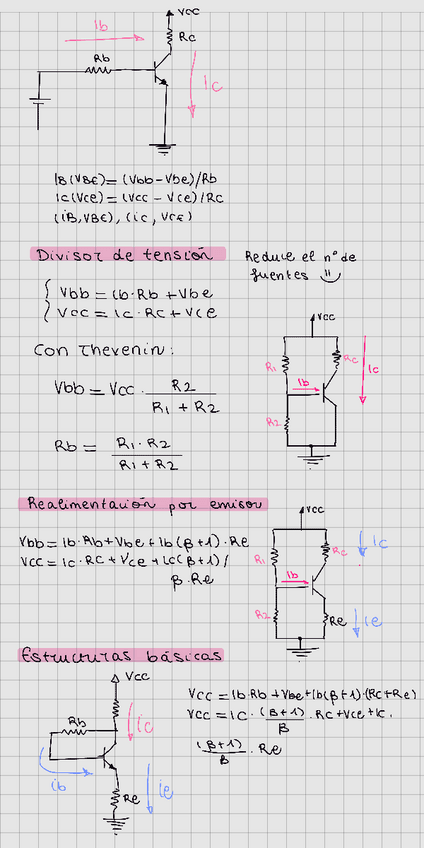 VCC
ib
Rc
Rb
ic
IB(VBE) = (Vbb-Vbe)/Rb
ic(Vce) = (Vcc - Vce)/RC
(iB, VBE), (ic, VCE)
Divisor de tensión
Reduce el nº de
fuentes
Vbb = ib·Rb + Vbe
Vcc = ic·Rc + Vce
Con Thevenin:
Vbb = Vcc · R2 / R1 + R2
Rb = R1·R2 / R1 + R2
VCC
R1
Rc
Ic
Ib
R2
Realimentación por emisor
Vbb = ib·Rb + Vbe + ib(β+1)·Re
Vcc = ic·RC + Vce + ic(β+1)/
β·Re
VCC
R1
Rc
ic
Ib
R2
Re
ie
Estructuras básicas
Vcc
Rb
ic
ib
Re
ie
Vcc = ib·Rb + Vbe + ib(β+1)·(Rc+Re)
Vcc = ic·(β+1)/β·RC + Vce + ic·
(β+1)/β·Re